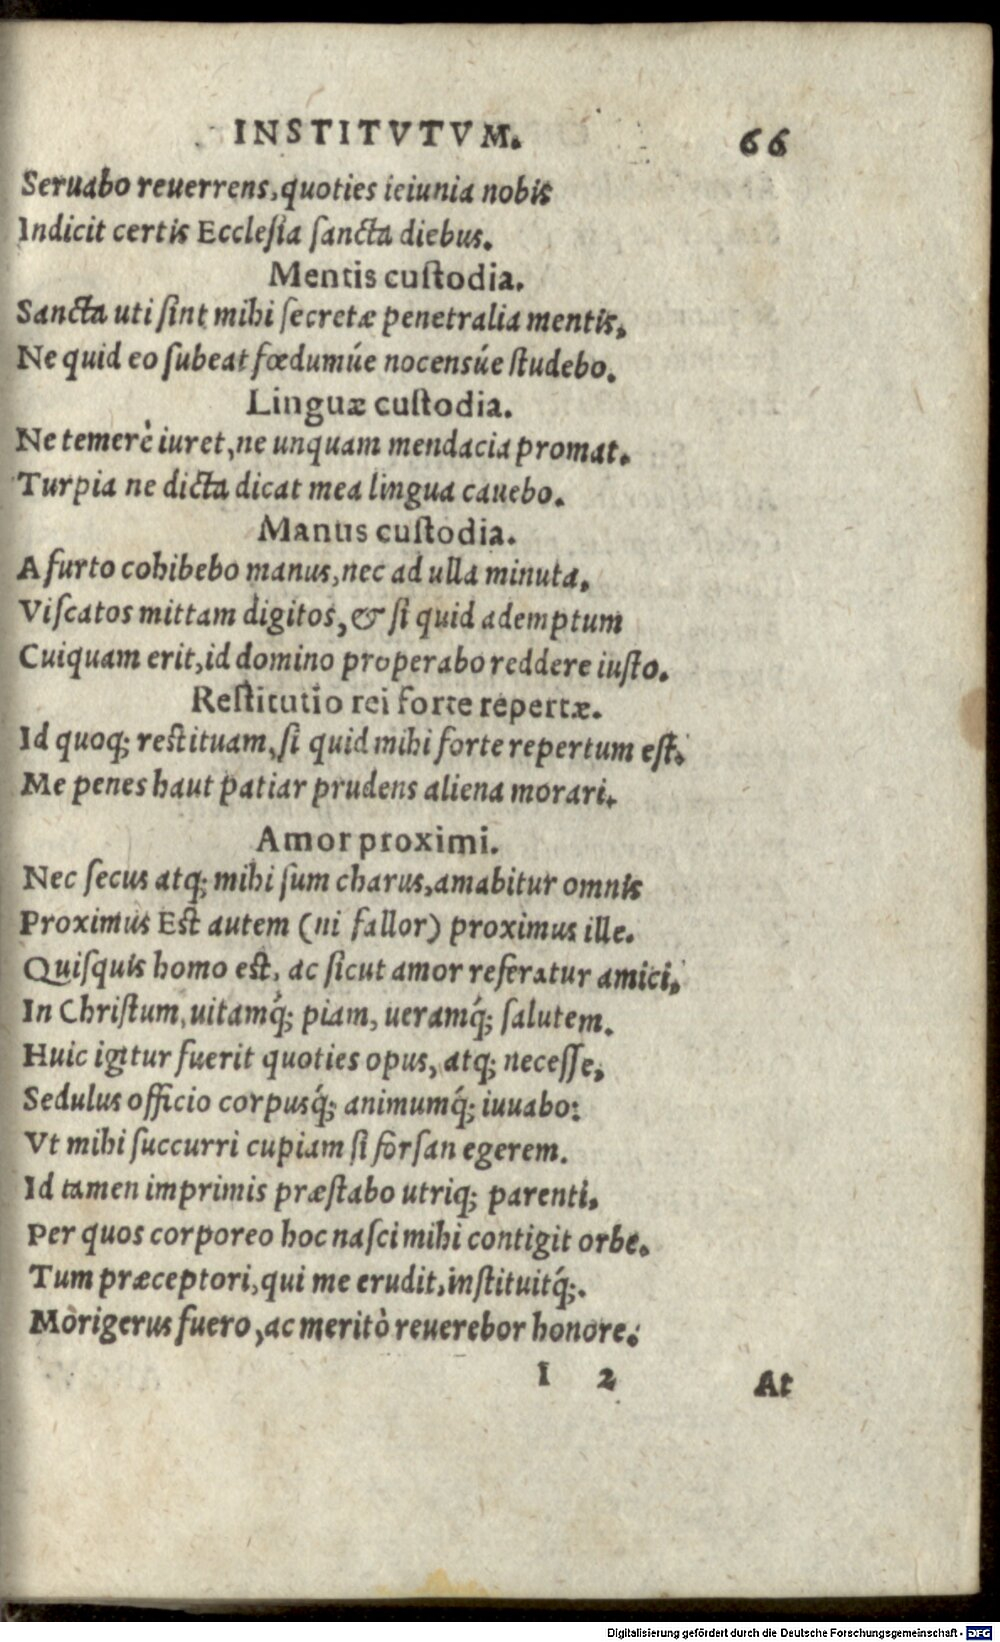 INSTITVTVM. 66
Seruabo reuerrens, quoties ieiunia nobis
Indicit certis Ecclesia sancta diebus.
Mentis custodia.
Sancta uti sint mihi secretæ penetralia mentis,
Ne quid eo subeat fœdumúe nocensúe studebo.
Linguæ custodia.
Ne temerè iuret, ne unquam mendacia promat.
Turpia ne dicta dicat mea lingua cauebo.
Manus custodia.
A furto cohibebo manus, nec ad ulla minuta,
Viscatos mittam digitos, & si quid ademptum
Cuiquam erit, id domino properabo reddere iusto.
Restitutio rei forte repertæ.
Id quoq; restituam, si quid mihi forte repertum est.
Me penes haut patiar prudens aliena morari.
Amor proximi.
Nec secus atq; mihi sum charus, amabitur omnis
Proximus Est autem (ni fallor) proximus ille.
Quisquis homo est, ac sicut amor referatur amici,
In Christum, uitamq́; piam, ueramq́; salutem.
Huic igitur fuerit quoties opus, atq; necesse,
Sedulus officio corpusq́; animumq́; iuuabo:
Vt mihi succurri cupiam si forsan egerem.
Id tamen imprimis præstabo utriq; parenti,
Per quos corporeo hoc nasci mihi contigit orbe.
Tum præceptori, qui me erudit, instituitq́;.
Mòrigerus fuero, ac meritò reuerebor honore.
I 2 At
Digitalisierung gefördert durch die Deutsche Forschungsgemeinschaft - DFG